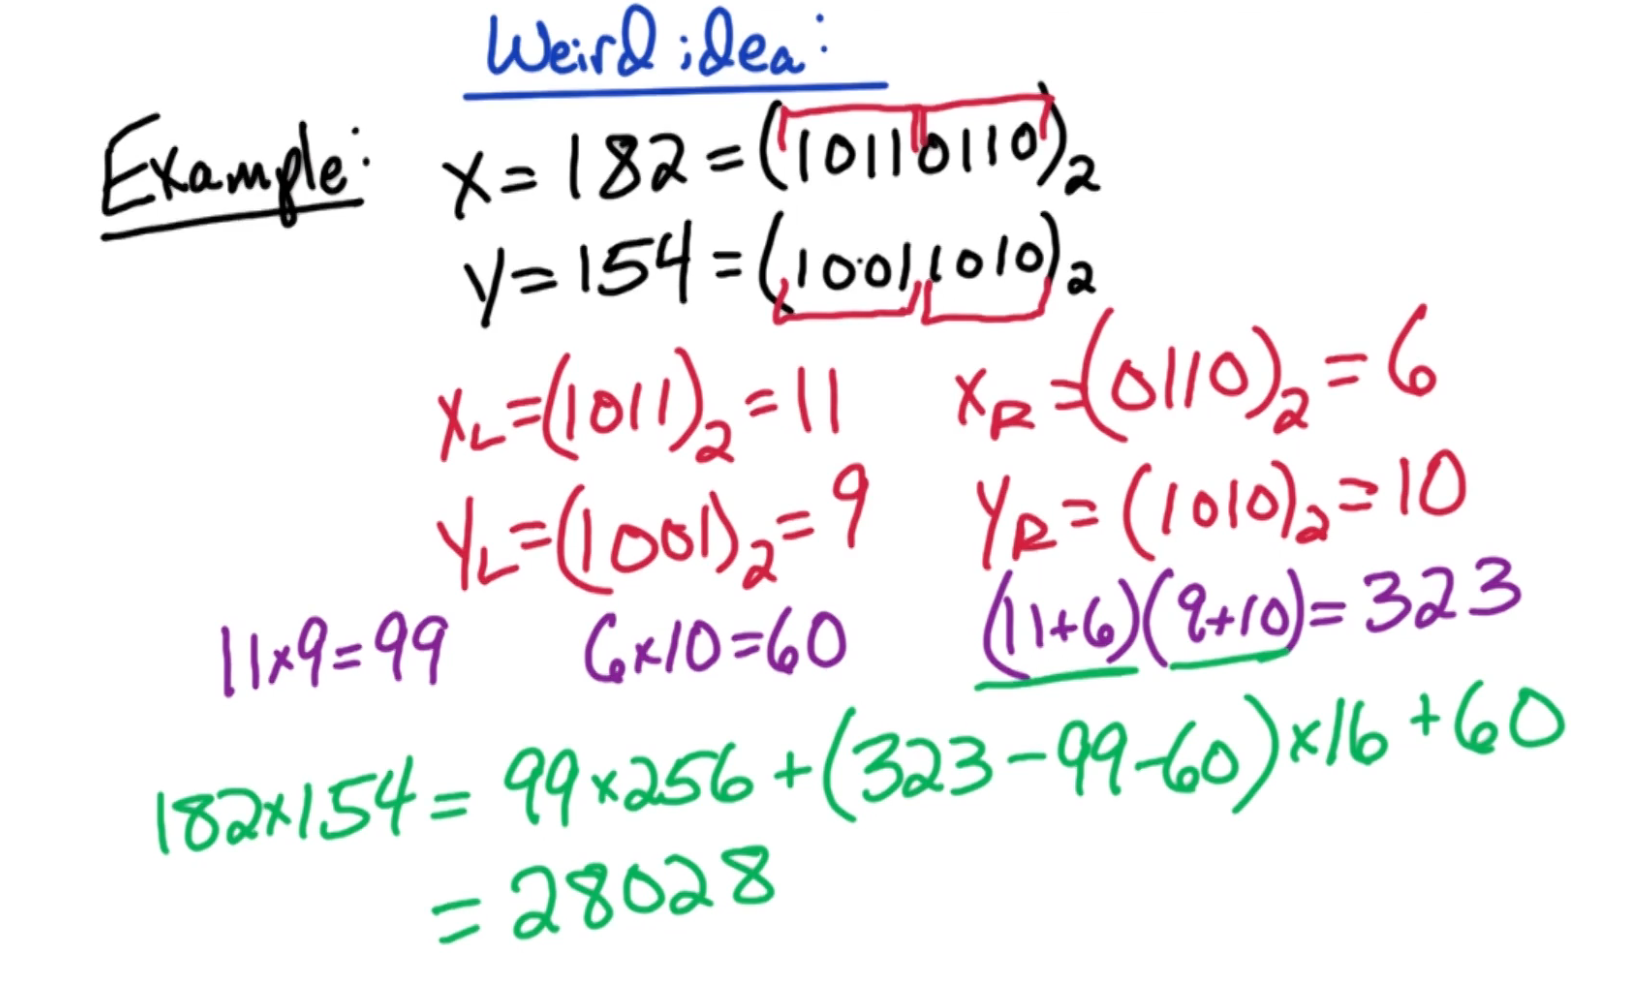 Weird idea:
Example: x = 182 = (10110110)₂
y = 154 = (10011010)₂
x_L = (1011)₂ = 11 x_R = (0110)₂ = 6
y_L = (1001)₂ = 9 y_R = (1010)₂ = 10
11×9=99 6×10=60 (11+6)(9+10)=323
182×154 = 99×256 + (323-99-60)×16 + 60
= 28028